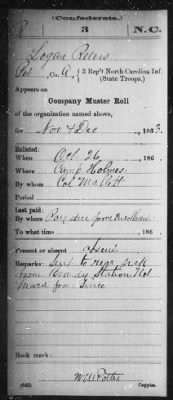 (Confederate.)
R 3 N.C.
Logan
Pvt., Co. A, 3 Reg't North Carolina Inf.
(State Troops.)
Appears on
Company Muster Roll
of the organization named above,
for Nov & Dec, 1863.
Enlisted:
When Oct 26, 186 .
Where Camp Holmes
By whom Col Mallett
Period
Last paid:
By whom Pay due from Enrollment
To what time , 186 .
Present or absent absent
Remarks: Sent to rear sick
from Brandy Station Not
heard from since
Book mark:
(642) Copyist.